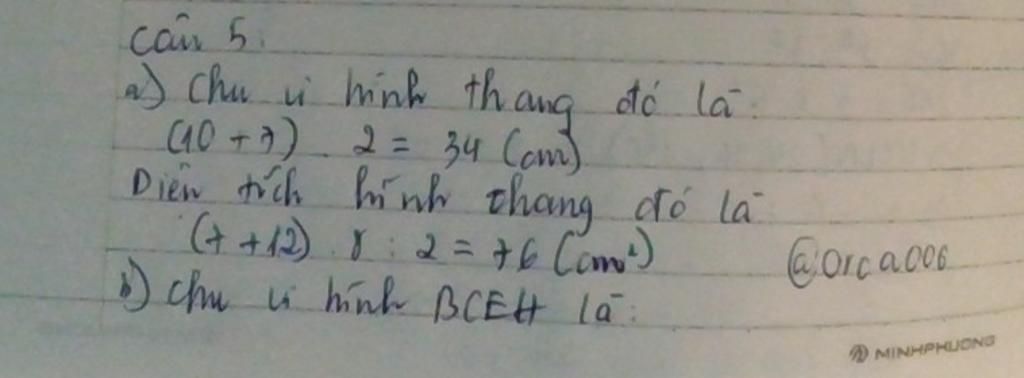 Câu 5:
a) Chu vi hình thang đó là:
(10 + 7) . 2 = 34 (cm)
Diện tích hình thang đó là
(7 + 12) . 8 : 2 = 76 (cm²)
@Orca006
b) Chu vi hình BCEH là:
MINHPHUONG